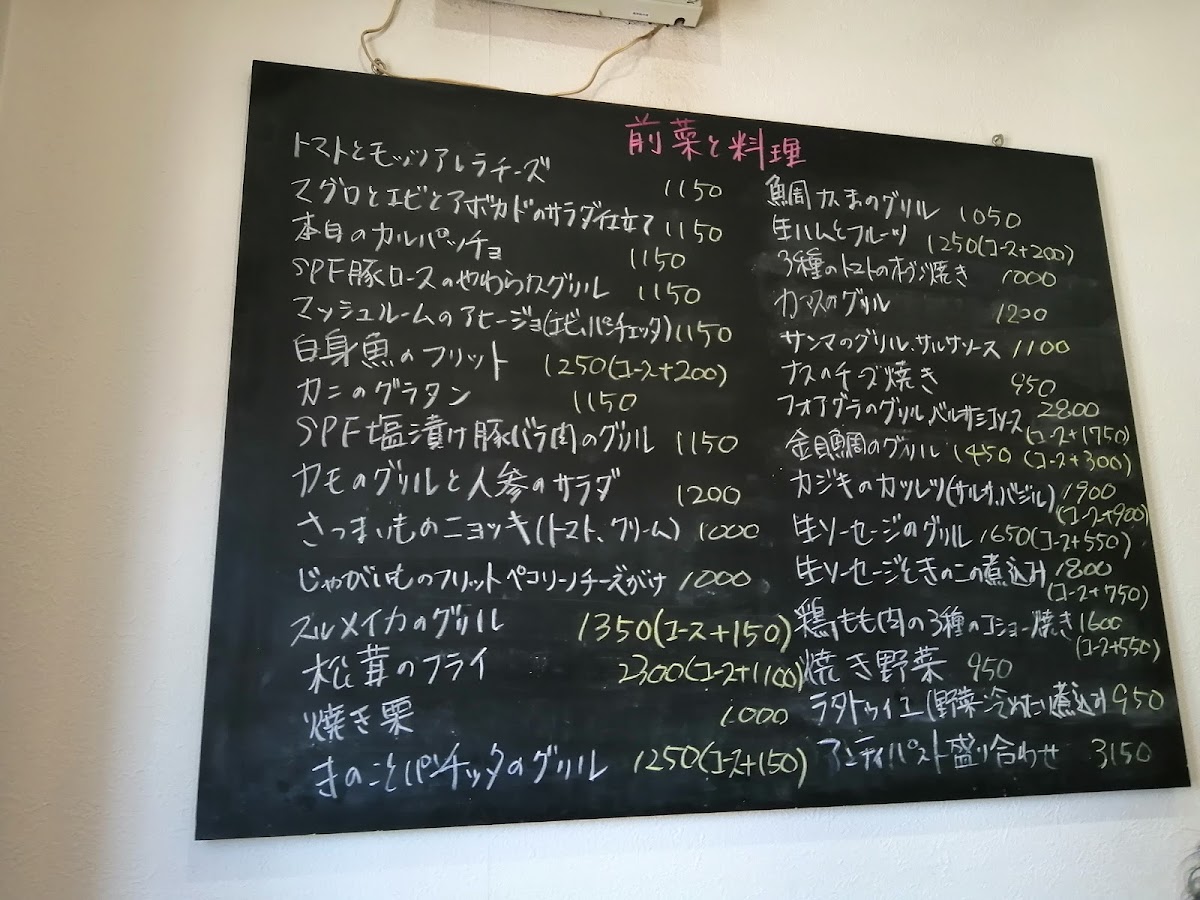 前菜と料理
トマトとモッツアレラチーズ 1150
マグロとエビとアボカドのサラダ仕立て 1150
本日のカルパッチョ 1150
SPF豚ロースのやわらかグリル 1150
マッシュルームのアヒージョ(エビ、パンチェッタ) 1150
白身魚のフリット 1250(コース+200)
カニのグラタン 1150
SPF塩漬け豚(バラ肉)のグリル 1150
カモのグリルと人参のサラダ 1200
さつまいものニョッキ(トマト、クリーム) 1000
じゃがいものフリットペコリーノチーズがけ 1000
スルメイカのグリル 1350(コース+150)
松茸のフライ 2300(コース+1100)
焼き栗 1000
きのことパンチッタのグリル 1250(コース+150)
鯛カマのグリル 1050
生ハムとフルーツ 1250(コース+200)
3種のトマトのオーブン焼き 1000
カマスのグリル 1200
サンマのグリル、サルサソース 1100
ナスのチーズ焼き 950
フォアグラのグリル、バルサミコソース 2800
(コース+1750)
金目鯛のグリル 1450 (コース+300)
カジキのカツレツ(サルサ、バジル) 1900
(コース+900)
生ソーセージのグリル 1650(コース+550)
生ソーセージときのこの煮込み 1800
(コース+750)
鶏もも肉の3種のコショー焼き 1600
(コース+550)
焼き野菜 950
ラタトゥイユ(野菜の冷めたい煮込み) 950
アンティパスト盛り合わせ 3150